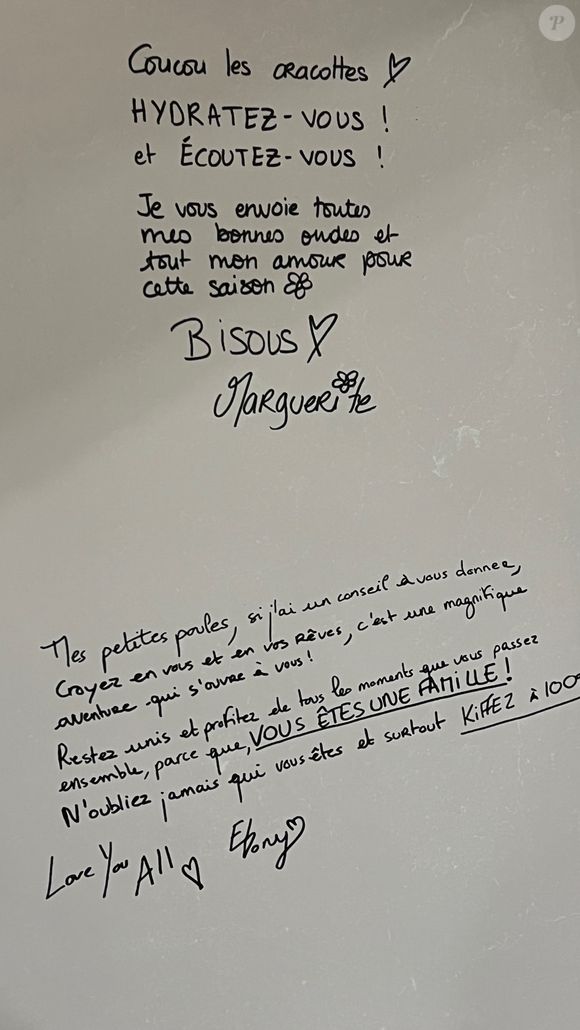 Coucou les cracottes ♡
HYDRATEZ-VOUS !
et ÉCOUTEZ-VOUS !
Je vous envoie toutes
mes bonnes ondes et
tout mon amour pour
cette saison
BISOUS ♡
MARGUERITE
Mes petites poules, si j'ai un conseil à vous donner,
Croyez en vous et en vos RÊVES, c'est une magnifique
aventure qui s'ouvre à vous !
Restez unis et profitez de tous les moments que vous passez
ensemble, parce que, VOUS ÊTES UNE FAMILLE !
N'oubliez jamais qui vous êtes et surtout KIFFEZ à 100%
Love You All ♡ Ebony ♡
P